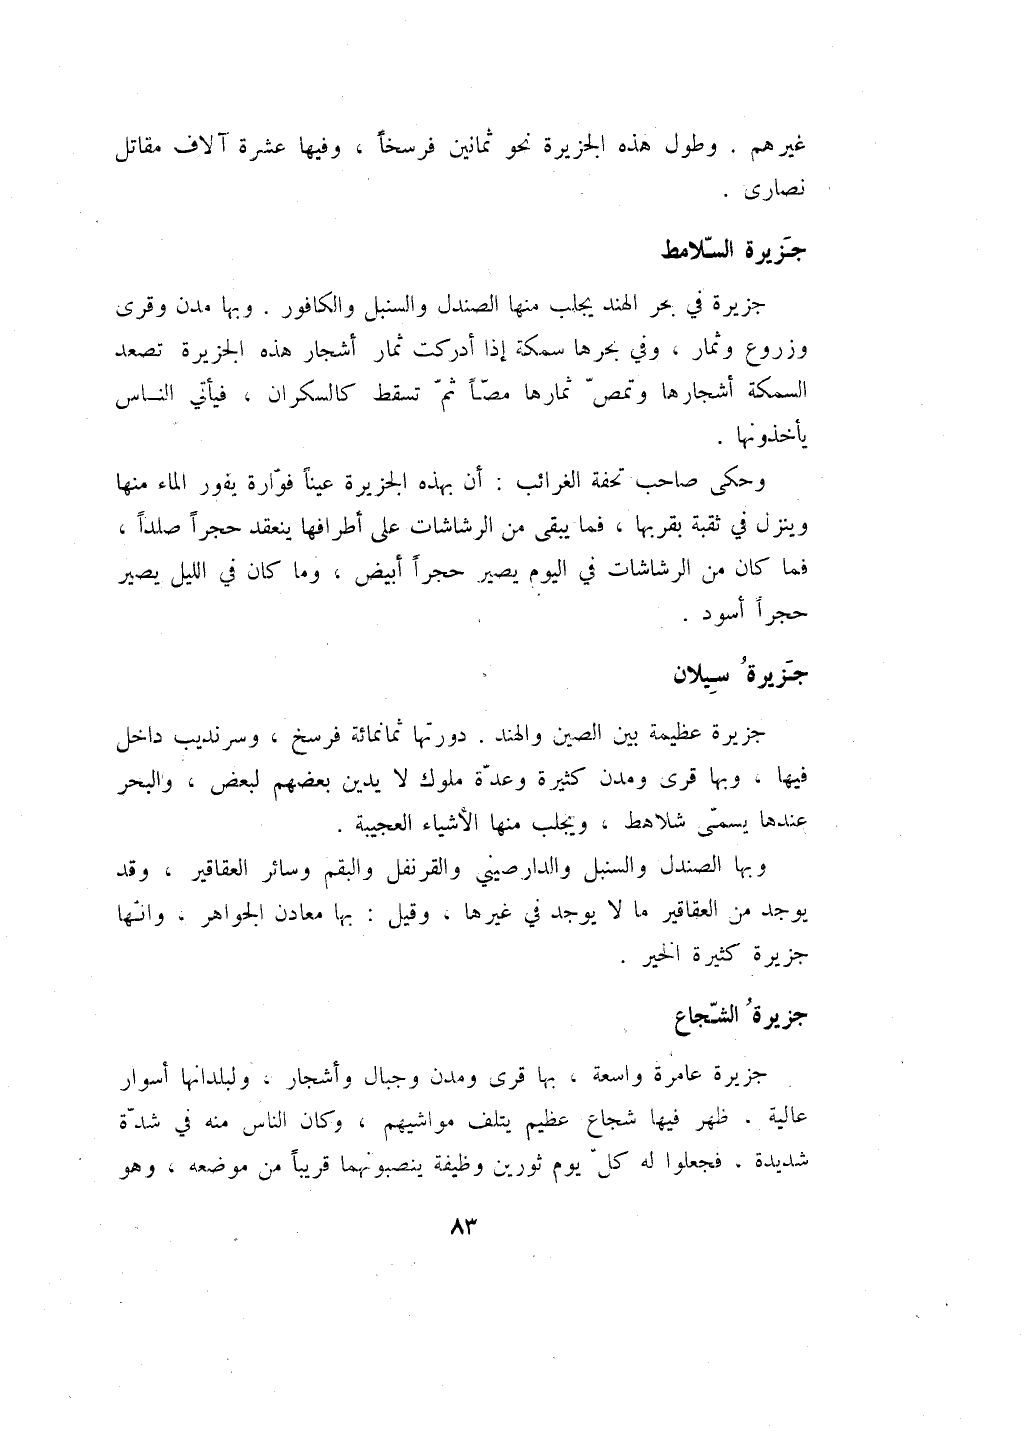 غيرهم . وطول هذه الجزيرة نحو ثمانين فرسخاً ، وفيها عشرة آلاف مقاتل
نصارى .
جَزيرة السّلامط
جزيرة في بحر الهند يجلب منها الصندل والسنبل والكافور . وبها مدن وقرى
وزروع وثمار ، وفي بحرها سمكة إذا أدركت ثمار أشجار هذه الجزيرة تصعد
السمكة أشجارها وتمصّ ثمارها مصّاً ثمّ تسقط كالسكران ، فيأتي النـاس
يأخذونها .
وحكى صاحب تحفة الغرائب : أن بهذه الجزيرة عيناً فوّارة يفور الماء منها
وينزل في ثقبة بقربها ، فما يبقى من الرشاشات على أطرافها ينعقد حجراً صلداً ،
فما كان من الرشاشات في اليوم يصير حجراً أبيض ، وما كان في الليل يصير
حجراً أسود .
جَزيرةُ سِيلان
جزيرة عظيمة بين الصين والهند . دورتها ثمانمائة فرسخ ، وسرنديب داخل
فيها ، وبها قرى ومدن كثيرة وعدّة ملوك لا يدين بعضهم لبعض ، والبحر
عندها يسمّى شلاهط ، ويجلب منها الأشياء العجيبة .
وبها الصندل والسنبل والدارصيني والقرنفل والبقم وسائر العقاقير ، وقد
يوجد من العقاقير ما لا يوجد في غيرها ، وقيل : بها معادن الجواهر ، وانّها
جزيرة كثيرة الخير .
جزيرةُ الشّجاع
جزيرة عامرة واسعة ، بها قرى ومدن وجبال وأشجار ، ولبلدانها أسوار
عالية . ظهر فيها شجاع عظيم يتلف مواشيهم ، وكان الناس منه في شدّة
شديدة . فجعلوا له كلّ يوم ثورين وظيفة ينصبونهما قريباً من موضعه ، وهو
٨٣